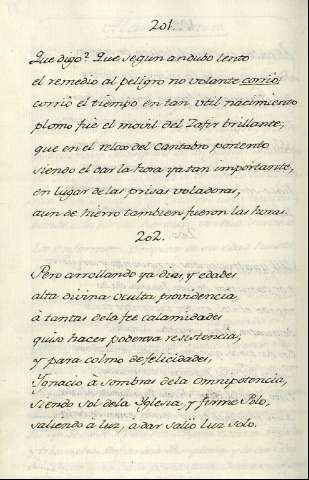 201.
Que digo? Que segun andubo lento
el remedio al peligro no volante corriò,
corriò el tiempo en tan util nacimiento
plomo fue el movil del Zafir brillante;
que en el relox del Cantabro portento
siendo el dar la hora ya tan importante,
en lugar de las prisas voladoras,
aun de hierro tambien fueron las horas.
202.
Pero arrollando ya dias, y edades
alta divina oculta providencia,
à tantas dela fee calamidades
quiso hacer poderosa resistencia;
y para colmo de felicidades,
Ygnacio à sombras dela omnipotencia,
siendo Sol dela Yglesia, y firme Polo,
saliendo a luz, à dar saliò luz solo.